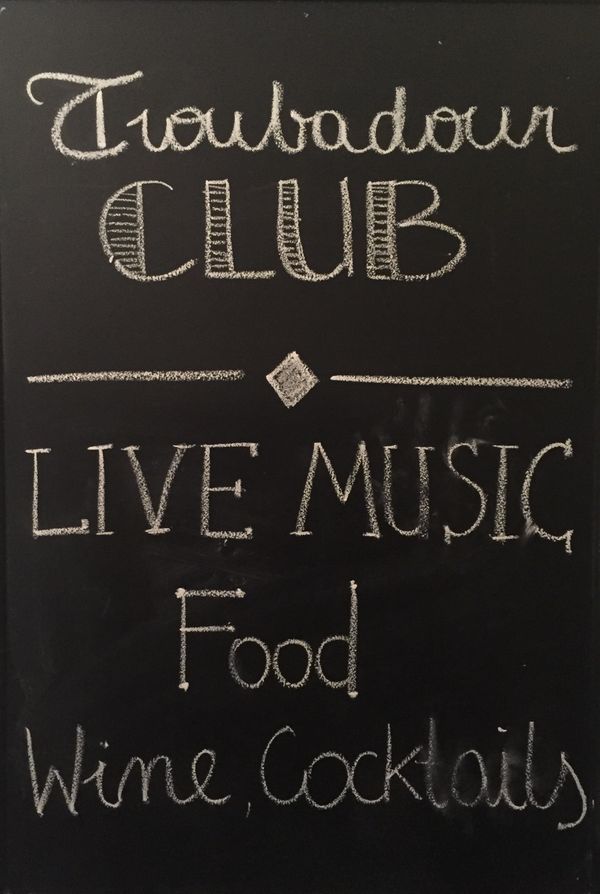 Troubadour
CLUB
LIVE MUSIC
Food
Wine, Cocktails